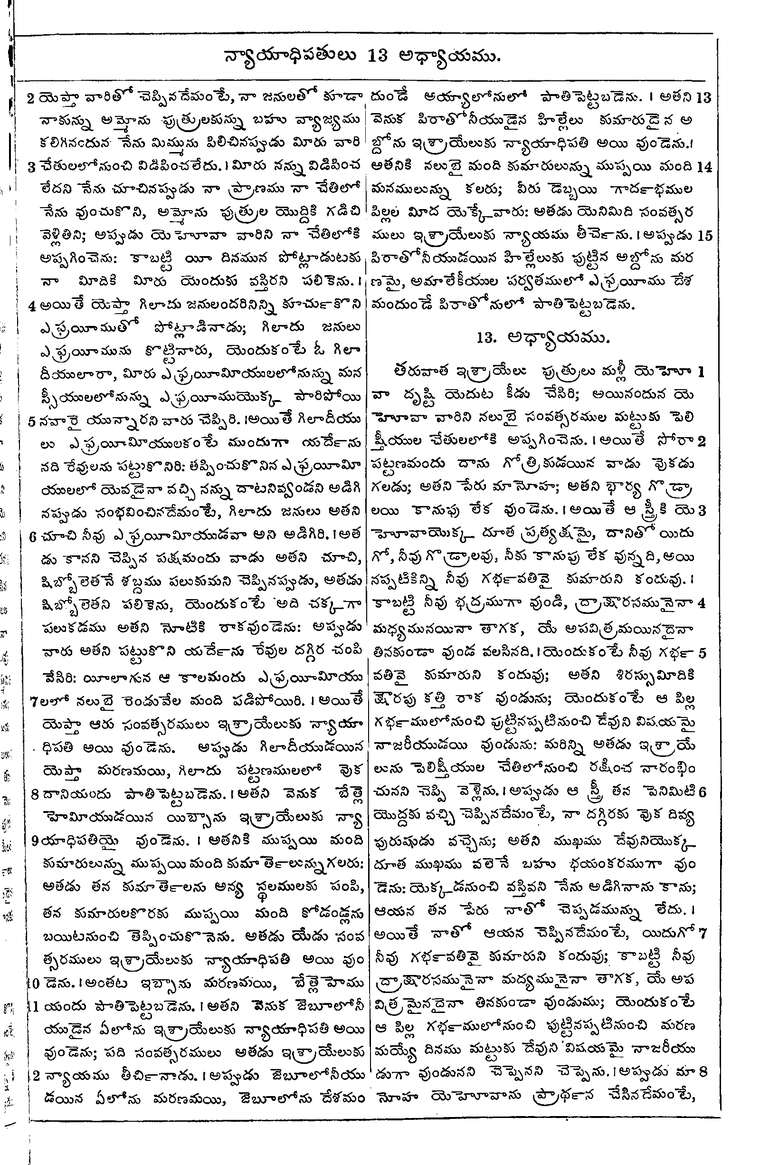 న్యాయాధిపతులు 13 అధ్యాయము.
2 యెప్తా వారితో చెప్పినదేమంటే, నా జనులతో కూడా
నాకున్ను అమ్మోను పుత్రులకున్ను బహు వ్యాజ్యము
కలిగినందున నేను మిమ్మును పిలిచినప్పుడు మీరు వారి
3 చేతులలోనుంచి విడిపించలేదు. । మీరు నన్ను విడిపించ
లేదని నేను చూచినప్పుడు నా ప్రాణము నా చేతిలో
నేను వుంచుకొని, అమ్మోను పుత్రుల యొద్దికి గడిచి
వెళ్లితిని; అప్పుడు యెహోవా వారిని నా చేతిలోకి
అప్పగించెను: కాబట్టి యీ దినమున పోట్లాడుటకు
నా మీదికి మీరు యెందుకు వస్తిరని పలికెను. ।
4 అయితే యెప్తా గిలాదు జనులందరినిన్ని కూర్చుకొని
ఎఫ్రయీముతో పోట్లాడినాడు; గిలాదు జనులు
ఎఫ్రయీమును కొట్టినారు, యెందుకంటే ఓ గిలా
దీయులారా, మీరు ఎఫ్రయీమీయులలోనున్ను మన
స్సీయులలోనున్ను ఎఫ్రయీముయొక్క పారిపోయి
5 నవారై యున్నారని వారు చెప్పిరి. । అయితే గిలాదీయు
లు ఎఫ్రయీమీయులకంటే ముందుగా యర్దేను
నది రేవులను పట్టుకొనిరి: తప్పించుకొనిన ఎఫ్రయీమీ
యులలో యెవడైనా వచ్చి నన్ను దాటనివ్వండని అడిగి
నప్పుడు సంభవించినదేమంటే, గిలాదు జనులు అతని
6 చూచి నీవు ఎఫ్రయీమీయుడవా అని అడిగిరి. । అత
డు కానని చెప్పిన పక్షమందు వాడు అతని చూచి,
షిబ్బోలెతనే శబ్దము పలుకుమని చెప్పినప్పుడు, అతడు
సిబ్బోలెతని పలికెను, యెందుకంటే అది చక్కగా
పలుకడము అతని నోటికి రాకవుండెను: అప్పుడు
వారు అతని పట్టుకొని యర్దేను రేవుల దగ్గిర చంపి
వేసిరి: యీలాగున ఆ కాలమందు ఎఫ్రయీమీయు
7 లలో నలుభై రెండువేల మంది పడిపోయిరి. । అయితే
యెప్తా ఆరు సంవత్సరములు ఇశ్రాయేలుకు న్యాయా
ధిపతి అయి వుండెను. అప్పుడు గిలాదీయుడయిన
యెప్తా మరణమయి, గిలాదు పట్టణములలో వుక
8 దానియందు పాతిపెట్టబడెను. । అతని వెనుక బేత్లె
హెమీయుడయిన యిబ్సాను ఇశ్రాయేలుకు న్యా
9 యాధిపతియై వుండెను. । అతనికి ముప్పయి మంది
కుమారులున్ను ముప్పయి మంది కుమార్తెలున్ను గలరు;
అతడు తన కుమార్తెలను అన్య స్థలములకు పంపి,
తన కుమారులకొరకు ముప్పయి మంది కోడండ్లను
బయిటనుంచి తెప్పించుకొనెను. అతడు యేడు సంవ
త్సరములు ఇశ్రాయేలుకు న్యాయాధిపతి అయి వుం
10 డెను. । అంతట ఇబ్సాను మరణమయి, బేత్లెహెము
11 యందు పాతిపెట్టబడెను. । అతని వెనుక జెబూలోనీ
యుడైన ఏలోను ఇశ్రాయేలుకు న్యాయాధిపతి అయి
వుండెను; పది సంవత్సరములు అతడు ఇశ్రాయేలుకు
12 న్యాయము తీర్చినాడు. । అప్పుడు జెబూలోనీయు
డయిన ఏలోను మరణమయి, జెబూలోను దేశమం
దుండే అయ్యాలోనులో పాతిపెట్టబడెను. । అతని 13
వెనుక పిరాతోనీయుడైన హిల్లేలు కుమారుడైన అ
బ్దోను ఇశ్రాయేలుకు న్యాయాధిపతి అయి వుండెను. ।
అతనికి నలుభై మంది కుమారులున్ను ముప్పయి మంది 14
మనమలున్ను కలరు; వీరు డెబ్బయి గార్దభముల
పిల్లల మీద యెక్కేవారు: అతడు యెనిమిది సంవత్సర
ములు ఇశ్రాయేలుకు న్యాయము తీర్చెను. । అప్పుడు 15
పిరాతోనీయుడయిన హిల్లేలుకు పుట్టిన అబ్దోను మర
ణమై, అమాలేకీయుల పర్వతములో ఎఫ్రయీము దేశ
మందుండే పిరాతోనులో పాతిపెట్టబడెను.
13. అధ్యాయము.
తరువాత ఇశ్రాయేలు పుత్రులు మళ్లీ యెహో 1
వా దృష్టి యెదుట కీడు చేసిరి; అయినందున యె
హోవా వారిని నలుభై సంవత్సరముల మట్టుకు పెలి
ష్తీయుల చేతులలోకి అప్పగించెను. । అయితే సోరా 2
పట్టణమందు దాను గోత్రికుడయిన వాడు వుకడు
గలడు; అతని పేరు మానోహ; అతని భార్య గొడ్రా
లయి కానుపు లేక వుండెను. । అయితే ఆ స్త్రీకి యె 3
హోవాయొక్క దూత ప్రత్యక్షమై, దానితో యిదు
గో, నీవు గొడ్రాలవు, నీకు కానుపు లేక వున్నది, అయి
నప్పటికిన్ని నీవు గర్భవతివై కుమారుని కందువు. ।
కాబట్టి నీవు భద్రముగా వుండి, ద్రాక్షారసమునైనా 4
మధ్యమునయినా తాగక, యే అపవిత్రమయినదైనా
తినకుండా వుండ వలసినది. । యెందుకంటే నీవు గర్భ 5
వతివై కుమారుని కందువు; అతని శిరస్సుమీదికి
క్షౌరపు కత్తి రాక వుండును; యెందుకంటే ఆ పిల్ల
గర్భములోనుంచి పుట్టినప్పటినుంచి దేవుని విషయమై
నాజరీయుడయి వుండును: మరిన్ని అతడు ఇశ్రాయే
లును పెలిష్తీయుల చేతిలోనుంచి రక్షించ నారంభిం
చునని చెప్పి వెళ్లెను. । అప్పుడు ఆ స్త్రీ తన పెనిమిటి 6
యొద్దకు వచ్చి చెప్పినదేమంటే, నా దగ్గిరకు వుక దివ్య
పురుషుడు వచ్చెను; అతని ముఖము దేవునియొక్క
దూత ముఖము వలెనే బహు భయంకరముగా వుం
డెను: యెక్కడనుంచి వస్తివని నేను అడిగినాను కాను;
ఆయన తన పేరు నాతో చెప్పడమున్ను లేదు. ।
అయితే నాతో ఆయన చెప్పినదేమంటే, యిదుగో 7
నీవు గర్భవతివై కుమారుని కందువు; కాబట్టి నీవు
ద్రాక్షారసమునైనా మద్యమునైనా తాగక, యే అప
విత్రమైనదైనా తినకుండా వుండుము; యెందుకంటే
ఆ పిల్ల గర్భములోనుంచి పుట్టినప్పటినుంచి మరణ
మయ్యే దినము మట్టుకు దేవుని విషయమై నాజరీయు
డుగా వుండునని చెప్పెనని చెప్పెను. । అప్పుడు మా 8
నోహ యెహోవాను ప్రార్థన చేసినదేమంటే,